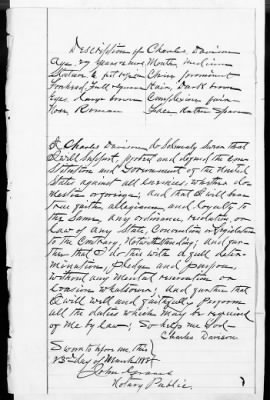 Description of Charles Davison
Age 29 years & mos Mouth, medium
Stature 5 ft Chin prominent
Forehead, Full & Hair, Dark brown
Eyes, large brown Complexion fair
Nose Roman Face Rather Spare
I Charles Davison do Solemnly Swear that
I will support, protect and defend the Con-
stitution and Government of the United
States against all Enemies, whether do-
mestic or foreign, and that I will bear
true faith, allegiance and Loyalty to
the Same, any ordinance, resolution, or
Law of any State, Convention or Legislature
to the Contrary, Notwithstanding; and fur-
ther that I do this with a full deter-
mination, pledge and purpose,
without any Mental reservation or
Evasion whatsoever; and further that
I will well and faithfully perform
all the duties which may be required
of me by law; So help me God-
Charles Davison
Sworn to before me, this
day of March
John
Notary Public